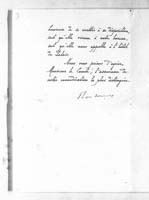 honneur de se mettre à sa disposition,
soit qu'elle vienne à notre bureau,
soit qu'elle nous appelle à l'hôtel
du Palais.
Nous vous prions d'agréer,
Monsieur le Comte, l'assurance de
notre considération la plus distinguée.